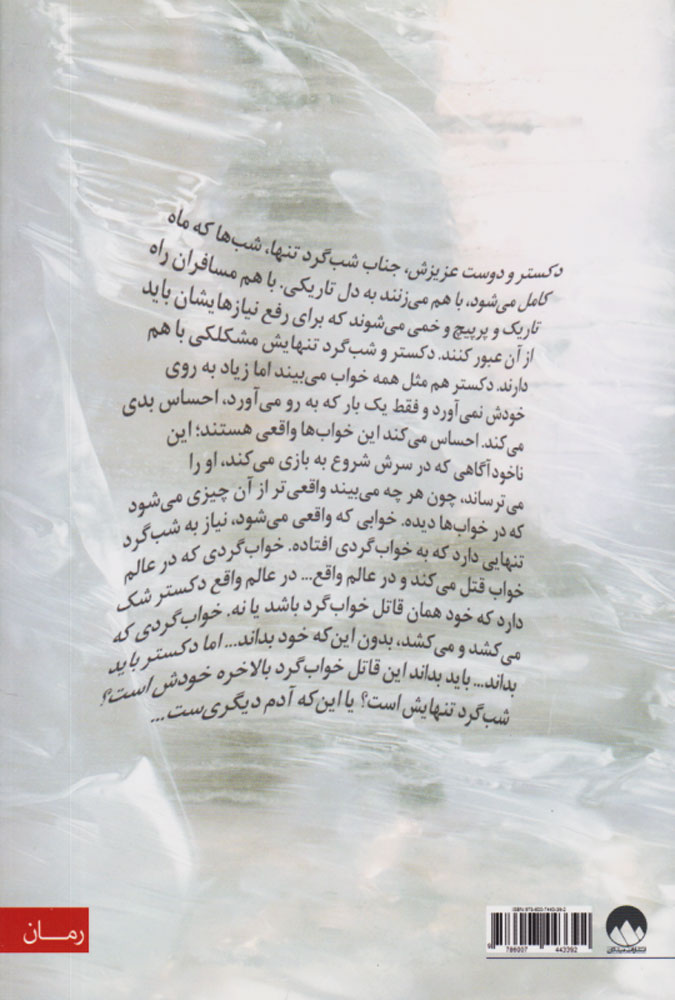 دکستر و دوست عزیزش، جناب شب‌گرد تنها، شب‌ها که ماه
کامل می‌شود، با هم می‌زنند به دل تاریکی. با هم مسافران راه
تاریک و پرپیچ و خمی می‌شوند که برای رفع نیازهایشان باید
از آن عبور کنند. دکستر و شب‌گرد تنهایش مشکلکی با هم
دارند. دکستر هم مثل همه خواب می‌بیند اما زیاد به روی
خودش نمی‌آورد و فقط یک بار که به رو می‌آورد، احساس بدی
می‌کند. احساس می‌کند این خواب‌ها واقعی هستند؛ این
ناخودآگاهی که در سرش شروع به بازی می‌کند، او را
می‌ترساند، چون هر چه می‌بیند واقعی‌تر از آن چیزی می‌شود
که در خواب‌ها دیده. خوابی که واقعی می‌شود، نیاز به شب‌گرد
تنهایی دارد که به خواب‌گردی افتاده. خواب‌گردی که در عالم
خواب قتل می‌کند و در عالم واقع... در عالم واقع دکستر شک
دارد که خود همان قاتل خواب‌گرد باشد یا نه. خواب‌گردی که
می‌کشد و می‌کشد، بدون این‌که خود بداند... اما دکستر باید
بداند... باید بداند این قاتل خواب‌گرد بالاخره خودش است؟
شب‌گرد تنهایش است؟ یا این‌که آدم دیگری‌ست...
رمان
ISBN: 978-600-7443-39-2
9 786007 443392